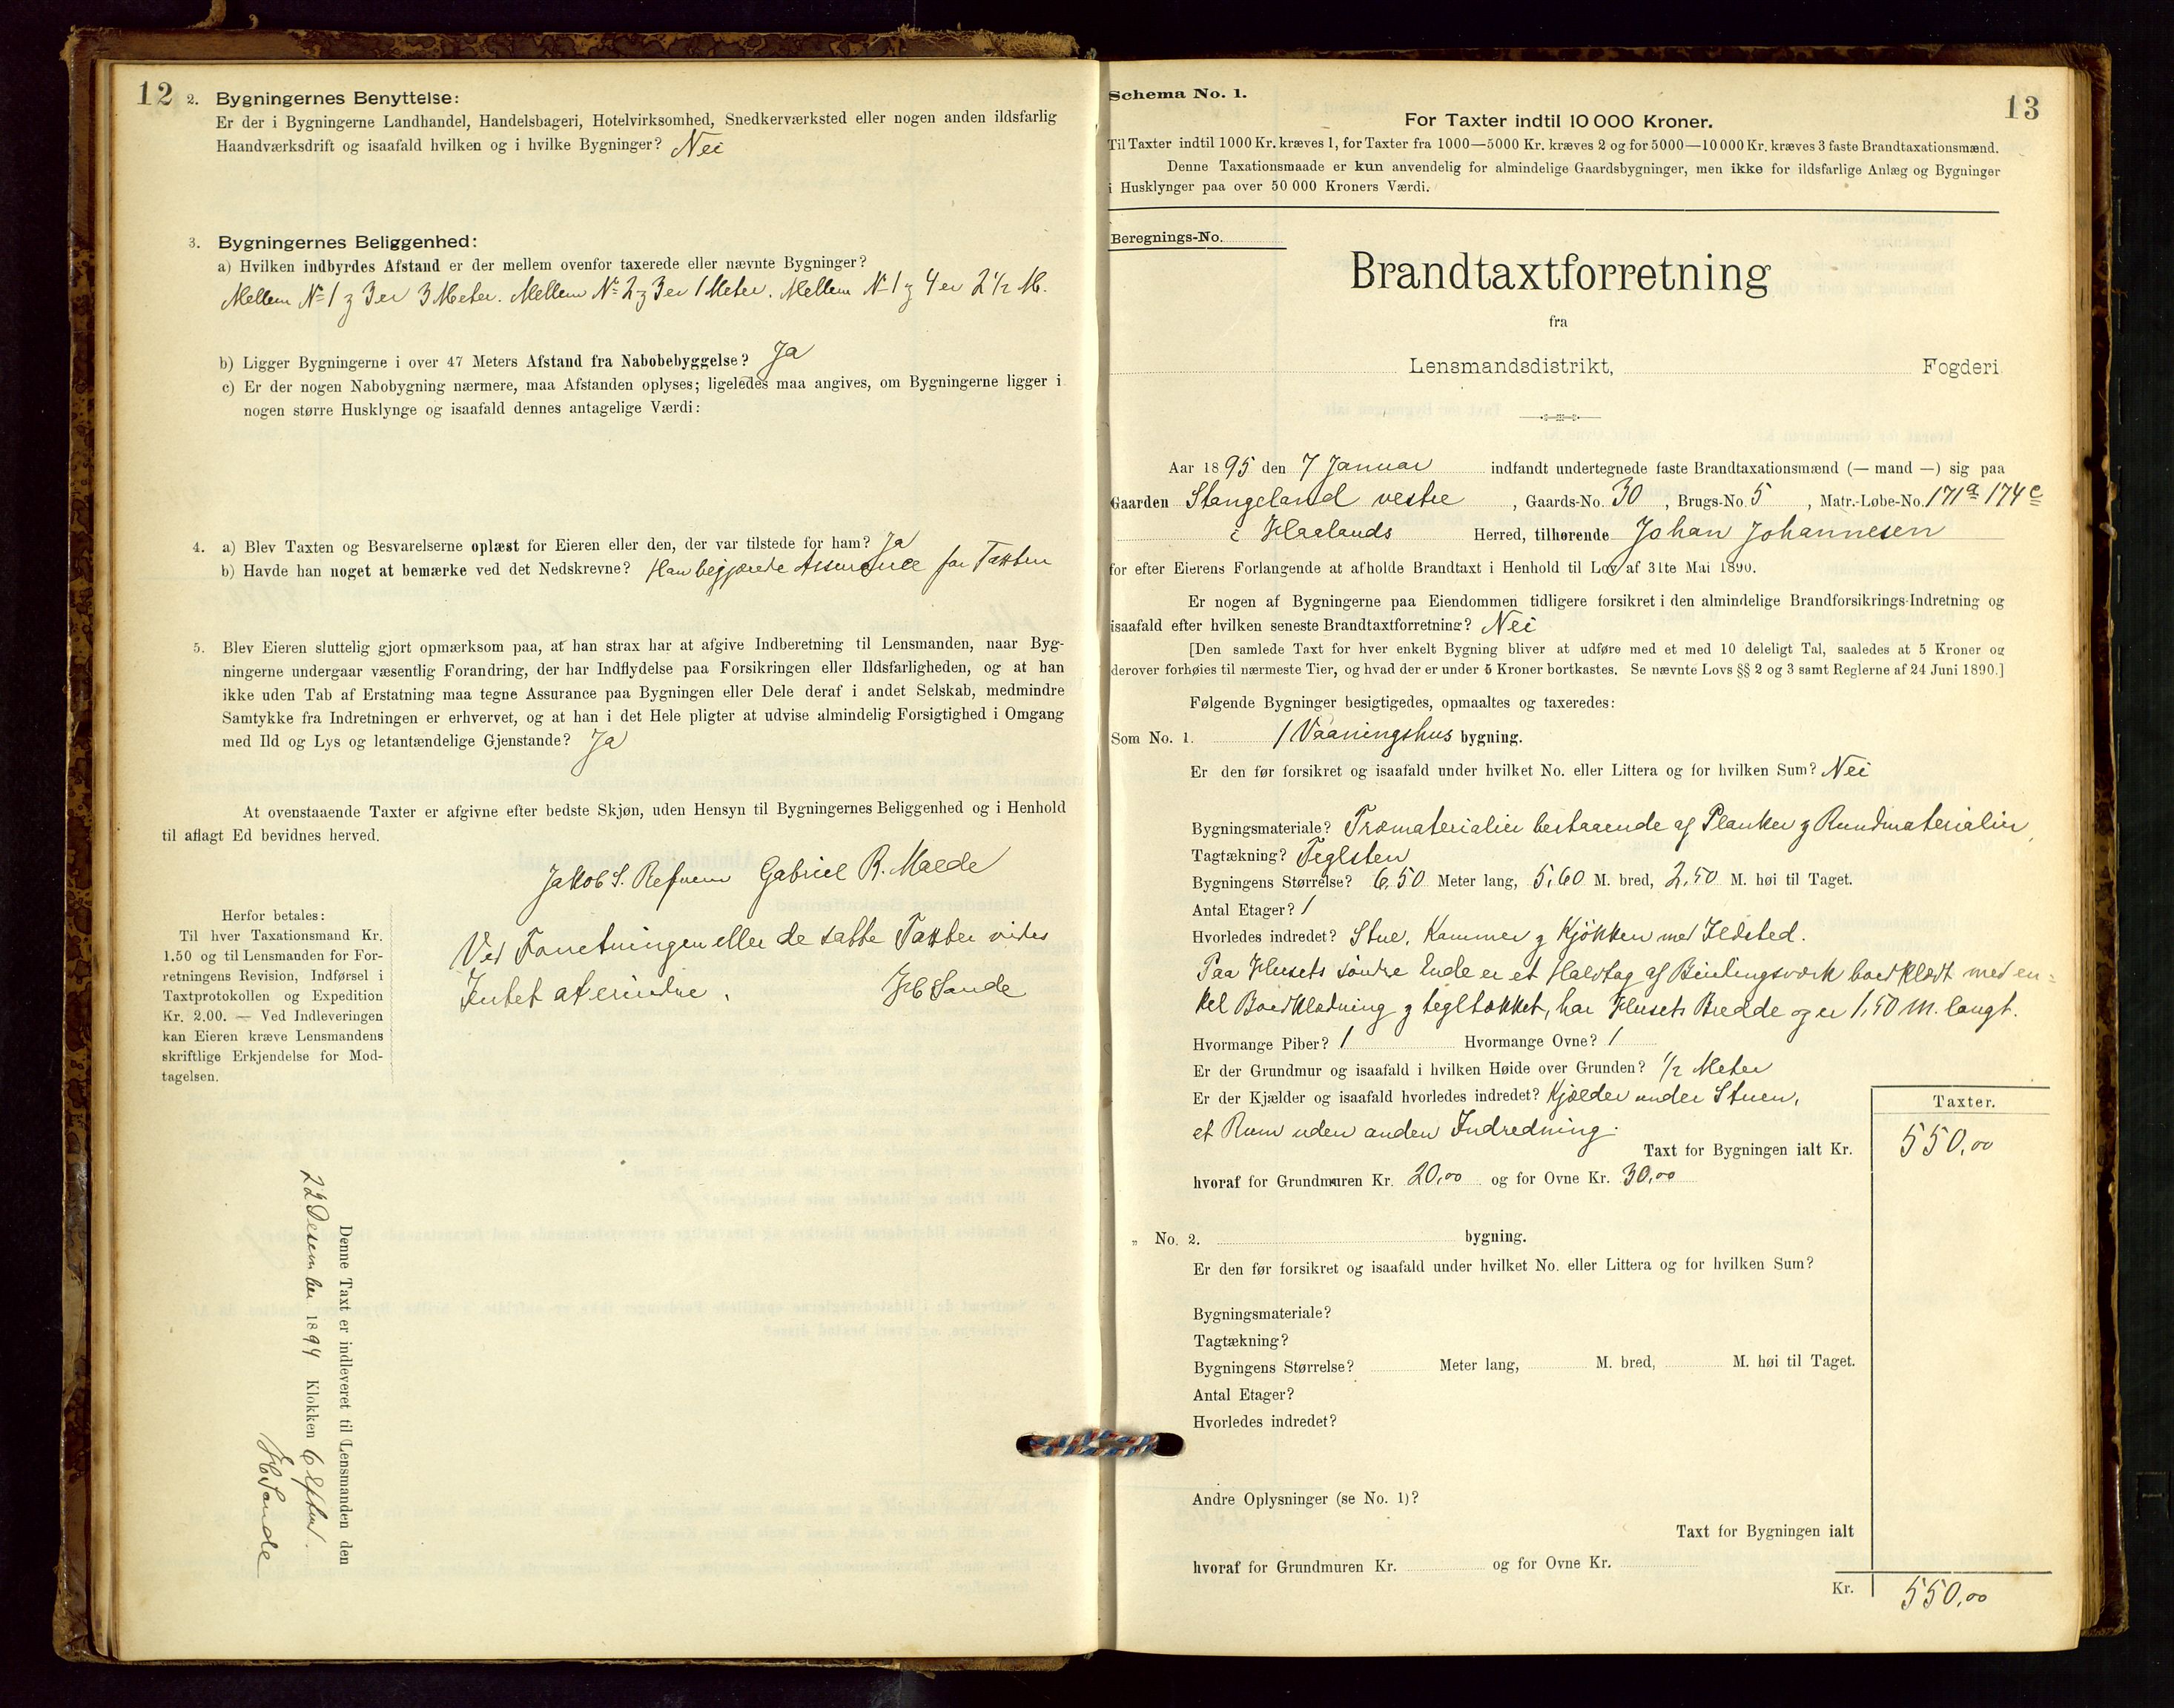 12
2. Bygningernes Benyttelse:
Er der i Bygningerne Landhandel, Handelsbageri, Hotelvirksomhed, Snedkerværksted eller nogen anden ildsfarlig
Haandværksdrift og isaafald hvilken og i hvilke Bygninger? Nei
3. Bygningernes Beliggenhed:
a) Hvilken indbyrdes Afstand er der mellem ovenfor taxerede eller nævnte Bygninger?
Mellem No 1 & 3 er 3 Meter. Mellem No 2 & 3 er 1 Meter. Mellem No 1 & 4 er 2 1/2 M.
b) Ligger Bygningerne i over 47 Meters Afstand fra Nabobebyggelse? Ja
c) Er der nogen Nabobygning nærmere, maa Afstanden oplyses; ligeledes maa angives, om Bygningerne ligger i
nogen større Husklynge og isaafald dennes antagelige Værdi:
4. a) Blev Taxten og Besvarelserne oplæst for Eieren eller den, der var tilstede for ham? Ja
b) Havde han noget at bemærke ved det Nedskrevne? Han begjærede Assurance for Taxten
5. Blev Eieren sluttelig gjort opmærksom paa, at han strax har at afgive Indberetning til Lensmanden, naar Byg-
ningerne undergaar væsentlig Forandring, der har Indflydelse paa Forsikringen eller Ildsfarligheden, og at han
ikke uden Tab af Erstatning maa tegne Assurance paa Bygningen eller Dele deraf i andet Selskab, medmindre
Samtykke fra Indretningen er erhvervet, og at han i det Hele pligter at udvise almindelig Forsigtighed i Omgang
med Ild og Lys og letantændelige Gjenstande? Ja
At ovenstaaende Taxter er afgivne efter bedste Skjøn, uden Hensyn til Bygningernes Beliggenhed og i Henhold
til aflagt Ed bevidnes herved.
Jakob S. Refnem Gabriel R. Malde
Herfor betales:
Til hver Taxationsmand Kr.
1.50 og til Lensmanden for For-
retningens Revision, Indførsel i
Taxtprotokollen og Expedition
Kr. 2.00. — Ved Indleveringen
kan Eieren kræve Lensmandens
skriftlige Erkjendelse for Mod-
tagelsen.
Ved Forretningen eller de satte Taxter vides
Intet at erindre. Sande
Denne Taxt er indleveret til Lensmanden den
22 Desember 1894 Klokken 6 Efterm.
Sande
13
Schema No. 1.
For Taxter indtil 10 000 Kroner.
Til Taxter indtil 1000 Kr. kræves 1, for Taxter fra 1000—5000 Kr. kræves 2 og for 5000—10 000 Kr. kræves 3 faste Brandtaxationsmænd.
Denne Taxationsmaade er kun anvendelig for almindelige Gaardsbygninger, men ikke for ildsfarlige Anlæg og Bygninger
i Husklynger paa over 50 000 Kroners Værdi.
Beregnings-No.
Brandtaxtforretning
fra
Lensmandsdistrikt, Fogderi
Aar 1895 den 7 Januar indfandt undertegnede faste Brandtaxationsmænd (— mand —) sig paa
Gaarden Stangeland vestre, Gaards-No. 30, Brugs-No. 5, Matr.-Løbe-No. 171a 174c
i Haalands Herred, tilhørende Johan Johannesen
for efter Eierens Forlangende at afholde Brandtaxt i Henhold til Lov af 31te Mai 1890.
Er nogen af Bygningerne paa Eiendommen tidligere forsikret i den almindelige Brandforsikrings-Indretning og
isaafald efter hvilken seneste Brandtaxtforretning? Nei
[Den samlede Taxt for hver enkelt Bygning bliver at udføre med et med 10 deleligt Tal, saaledes at 5 Kroner og
derover forhøies til nærmeste Tier, og hvad der er under 5 Kroner bortkastes. Se nævnte Lovs §§ 2 og 3 samt Reglerne af 24 Juni 1890.]
Følgende Bygninger besigtigedes, opmaaltes og taxeredes:
Som No. 1. 1 Vaaningshus bygning.
Er den før forsikret og isaafald under hvilket No. eller Littera og for hvilken Sum? Nei
Bygningsmateriale? Træmaterialier bestaaende af Planker & Rundmaterialier,
Tagtækning? Teglsten
Bygningens Størrelse? 6,50 Meter lang, 5,60 M. bred, 2,50 M. høi til Taget.
Antal Etager? 1
Hvorledes indredet? Stue, Kammer & Kjøkken med Ildsted.
Paa Husets søndre Ende er et Halvtag af Bindingsværk bordklædt med en-
kel Bordklædning & tegltækket, har Husets Bredde og er 1,50 M. langt.
Hvormange Piber? 1 Hvormange Ovne? 1
Er der Grundmur og isaafald i hvilken Høide over Grunden? 1/2 Meter
Er der Kjælder og isaafald hvorledes indredet? Kjælder under Stuen,
et Rum uden anden Indredning.
Taxter.
Taxt for Bygningen ialt Kr. 550,00
hvoraf for Grundmuren Kr. 20,00 og for Ovne Kr. 30,00
" No. 2. bygning.
Er den før forsikret og isaafald under hvilket No. eller Littera og for hvilken Sum?
Bygningsmateriale?
Tagtækning?
Bygningens Størrelse? Meter lang, M. bred, M. høi til Taget.
Antal Etager?
Hvorledes indredet?
Andre Oplysninger (se No. 1)?
Taxt for Bygningen ialt
hvoraf for Grundmuren Kr. og for Ovne Kr.
Kr. 550,00